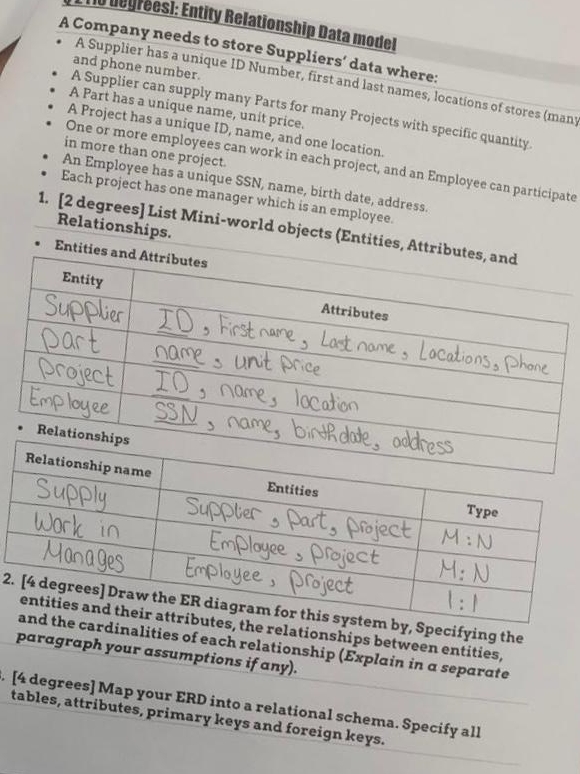 degrees]: Entity Relationship Data model
A Company needs to store Suppliers' data where:
• A Supplier has a unique ID Number, first and last names, locations of stores (many
and phone number.
• A Supplier can supply many Parts for many Projects with specific quantity.
• A Part has a unique name, unit price.
• A Project has a unique ID, name, and one location.
• One or more employees can work in each project, and an Employee can participate
in more than one project.
• An Employee has a unique SSN, name, birth date, address.
• Each project has one manager which is an employee.
1. [2 degrees] List Mini-world objects (Entities, Attributes, and
Relationships.
• Entities and Attributes
Entity Attributes
Supplier ID, First name, Last name, Locations, Phone
part name, unit price
project ID, name, location
Employee SSN, name, birthdate, address
• Relationships
Relationship name Entities Type
Supply Supplier, part, project M:N
Work in Employee, project M:N
Manages Employee, project 1:1
2. [4 degrees] Draw the ER diagram for this system by, Specifying the
entities and their attributes, the relationships between entities,
and the cardinalities of each relationship (Explain in a separate
paragraph your assumptions if any).
. [4 degrees] Map your ERD into a relational schema. Specify all
tables, attributes, primary keys and foreign keys.